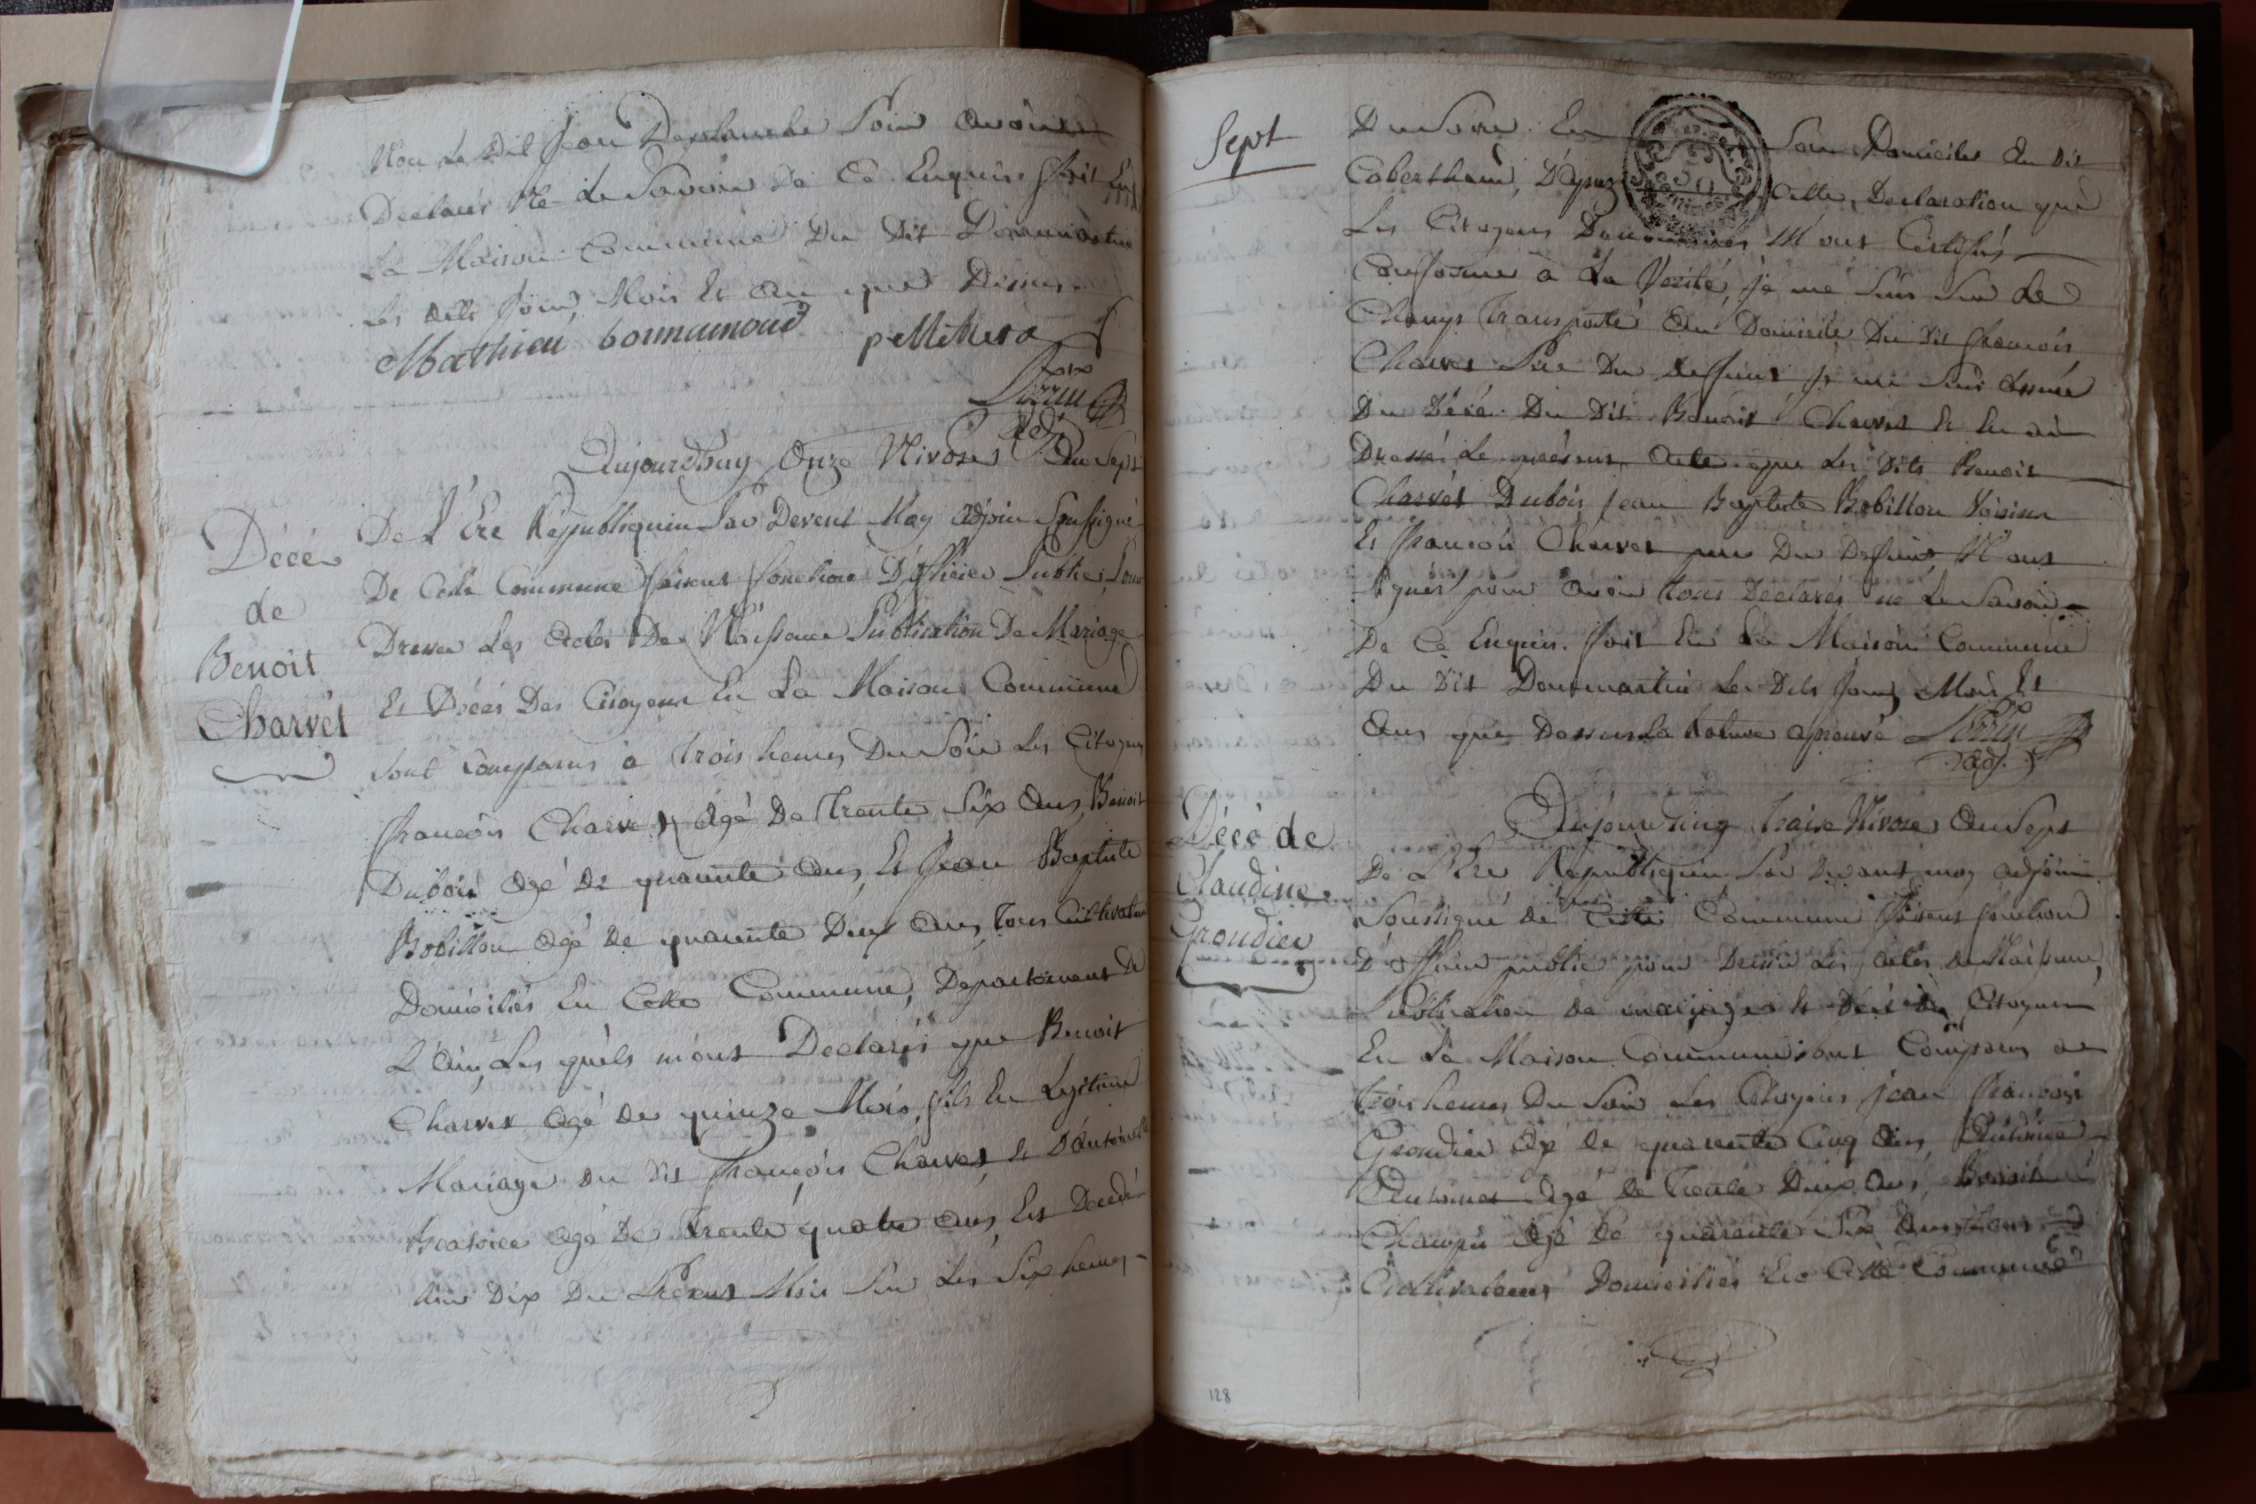 Non Le Dit Jean Desplanche Pour avoir
Declaré Ne Le Savoir De Ce Enquis fait En
La Maison Commune Du Dit Dommartin
Les dits Jour, Mois Et an que Dessus
Mathieu bonnamour pelletier
Adj.
Aujourdhuy Onze Nivose an Sept
De L'Ere Republiquin Par Devent Moy adjoin Soussigné
De Cette Commune faisent fonctions D'officier Public, Pour
Dresser Les actes De Naissance Publication De Mariage
Et Décès Des Citoyens En La Maison Commune
Sont Comparus a trois heures Du Soir Les Citoyens
francois Charvet Agé De Trente Six ans, Benoit
Dubois agé De quarente ans, Et Jean Baptiste
Bobillon agé De quarente Deux ans, tous Cultivateurs
Domiciliés En Cette Commune, Departement De
L'ain, Les quels m'ont Declarés que Benoit
Charvet agé De quinze Mois, fils En Legitime
Mariage Du Dit francois Charvet Et D'Antoinette
agé De trente quatre ans, Est Decedé
Aux Dix Du Présent Mois Sur Les Six heures
Décé
de
Benoit
Charvét
Sept
Du Soire En Son Domicile au Dit
Coberthoud, D'apres Cette Declaration que
Les Citoyens Denommés M'ont Certifiés
Conforme a La Verité, Je me Suis Sur Le
Champs Transporté au Domicile Du Dit francois
Charvet Pere Du deffunt Je me Suis assuré
Du Décé Du Dit Benoit Charvet Et En ai
Dressé Le présent acte que Les Dits Benoit
Charvét Dubois Jean Baptiste Bobillon Voisins
Et francois Charvet pere Du Deffunt, N'ont
Signés pour avoir tous Declarés ne Le Savoir
De Ce Enquis. fait En La Maison Commune
Du Dit Dommartin Les Dits Jour, Mois Et
Ans que Dessus La Rature aprouvé
adj.
Décé de
Claudine
Grondier
Aujourdhuy Traise Nivose an Sept
De L'Ere Republiquin Par devant moy adjoin
Soussigné de Cette Commune faisent fonction
D'officier public pour Dresser Les actes de Naissance,
Publication de mariages et décé des Citoyens
En La Maison Commune Sont Comparus a
trois heures Du Soir Les Citoyens Jean francois
Grondier agé de quarente Cinq ans, Antoine
agé de Trente Deux ans, Benoit
agé de quarente Six ans, tous
Cultivateurs Domiciliés En Cette Commune
128